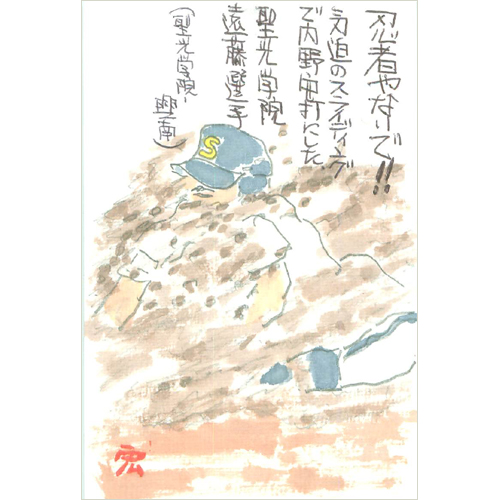 忍者やないで!!
気迫のスライディング
で内野安打にした、
聖光学院
遠藤選手
(聖光学院-興南)
S
宏